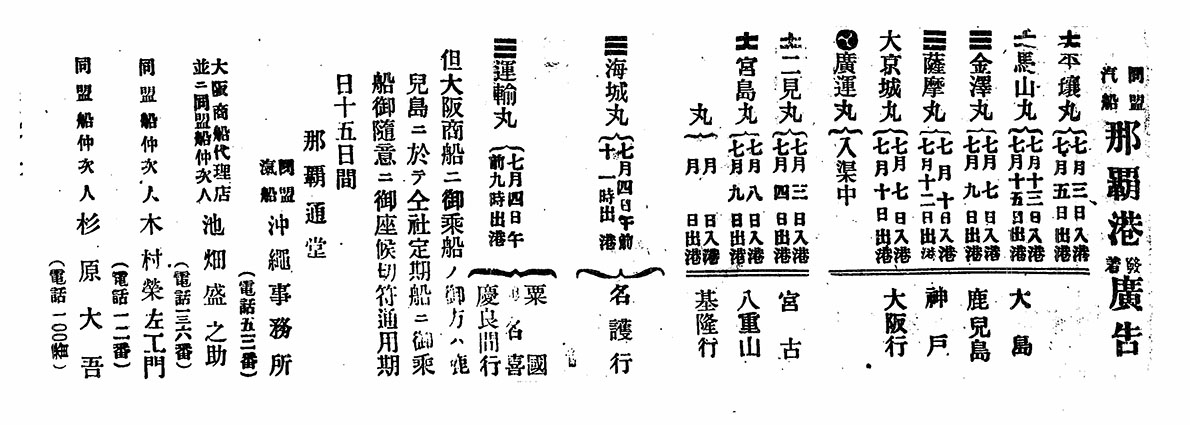 同盟汽船 那覇港 發着 廣告
平壤丸 七月三日入港 七月五日出港
馬山丸 七月十三日入港 七月十五日出港 大島
金澤丸 七月七日入港 七月九日出港 鹿兒島
薩摩丸 七月十日入港 七月十二日出港 神戸
大京城丸 七月七日入港 七月十日出港 大阪行
廣運丸 入渠中
二見丸 七月三日入港 七月四日出港 宮古
宮島丸 七月八日入港 七月九日出港 八重山
丸 月日入港 月日出港 基隆行
海城丸 七月四日午前十一時出港 名護行
運輸丸 七月四日午前九時出港 粟國 名喜 慶良間行
但大阪商船ニ御乘船ノ御方ハ鹿
兒島ニ於テ仝社定期船ニ御乘
船御隨意ニ御座候切符通用期
日十五日間
那覇通堂
同盟汽船 沖繩事務所
(電話五三番)
大阪商船代理店並ニ同盟船仲次人 池畑盛之助
(電話一三六番)
同盟船仲次人 木村榮左工門
(電話一二番)
同盟船仲次人 杉原大吾
(電話一〇〇番)